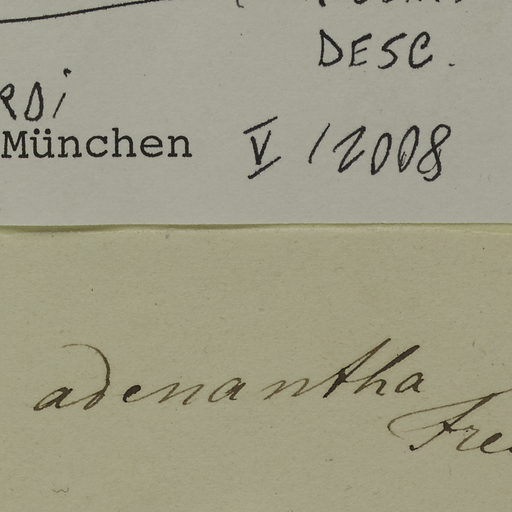 DESC.
RDi
München V/2008
adenantha
Fre